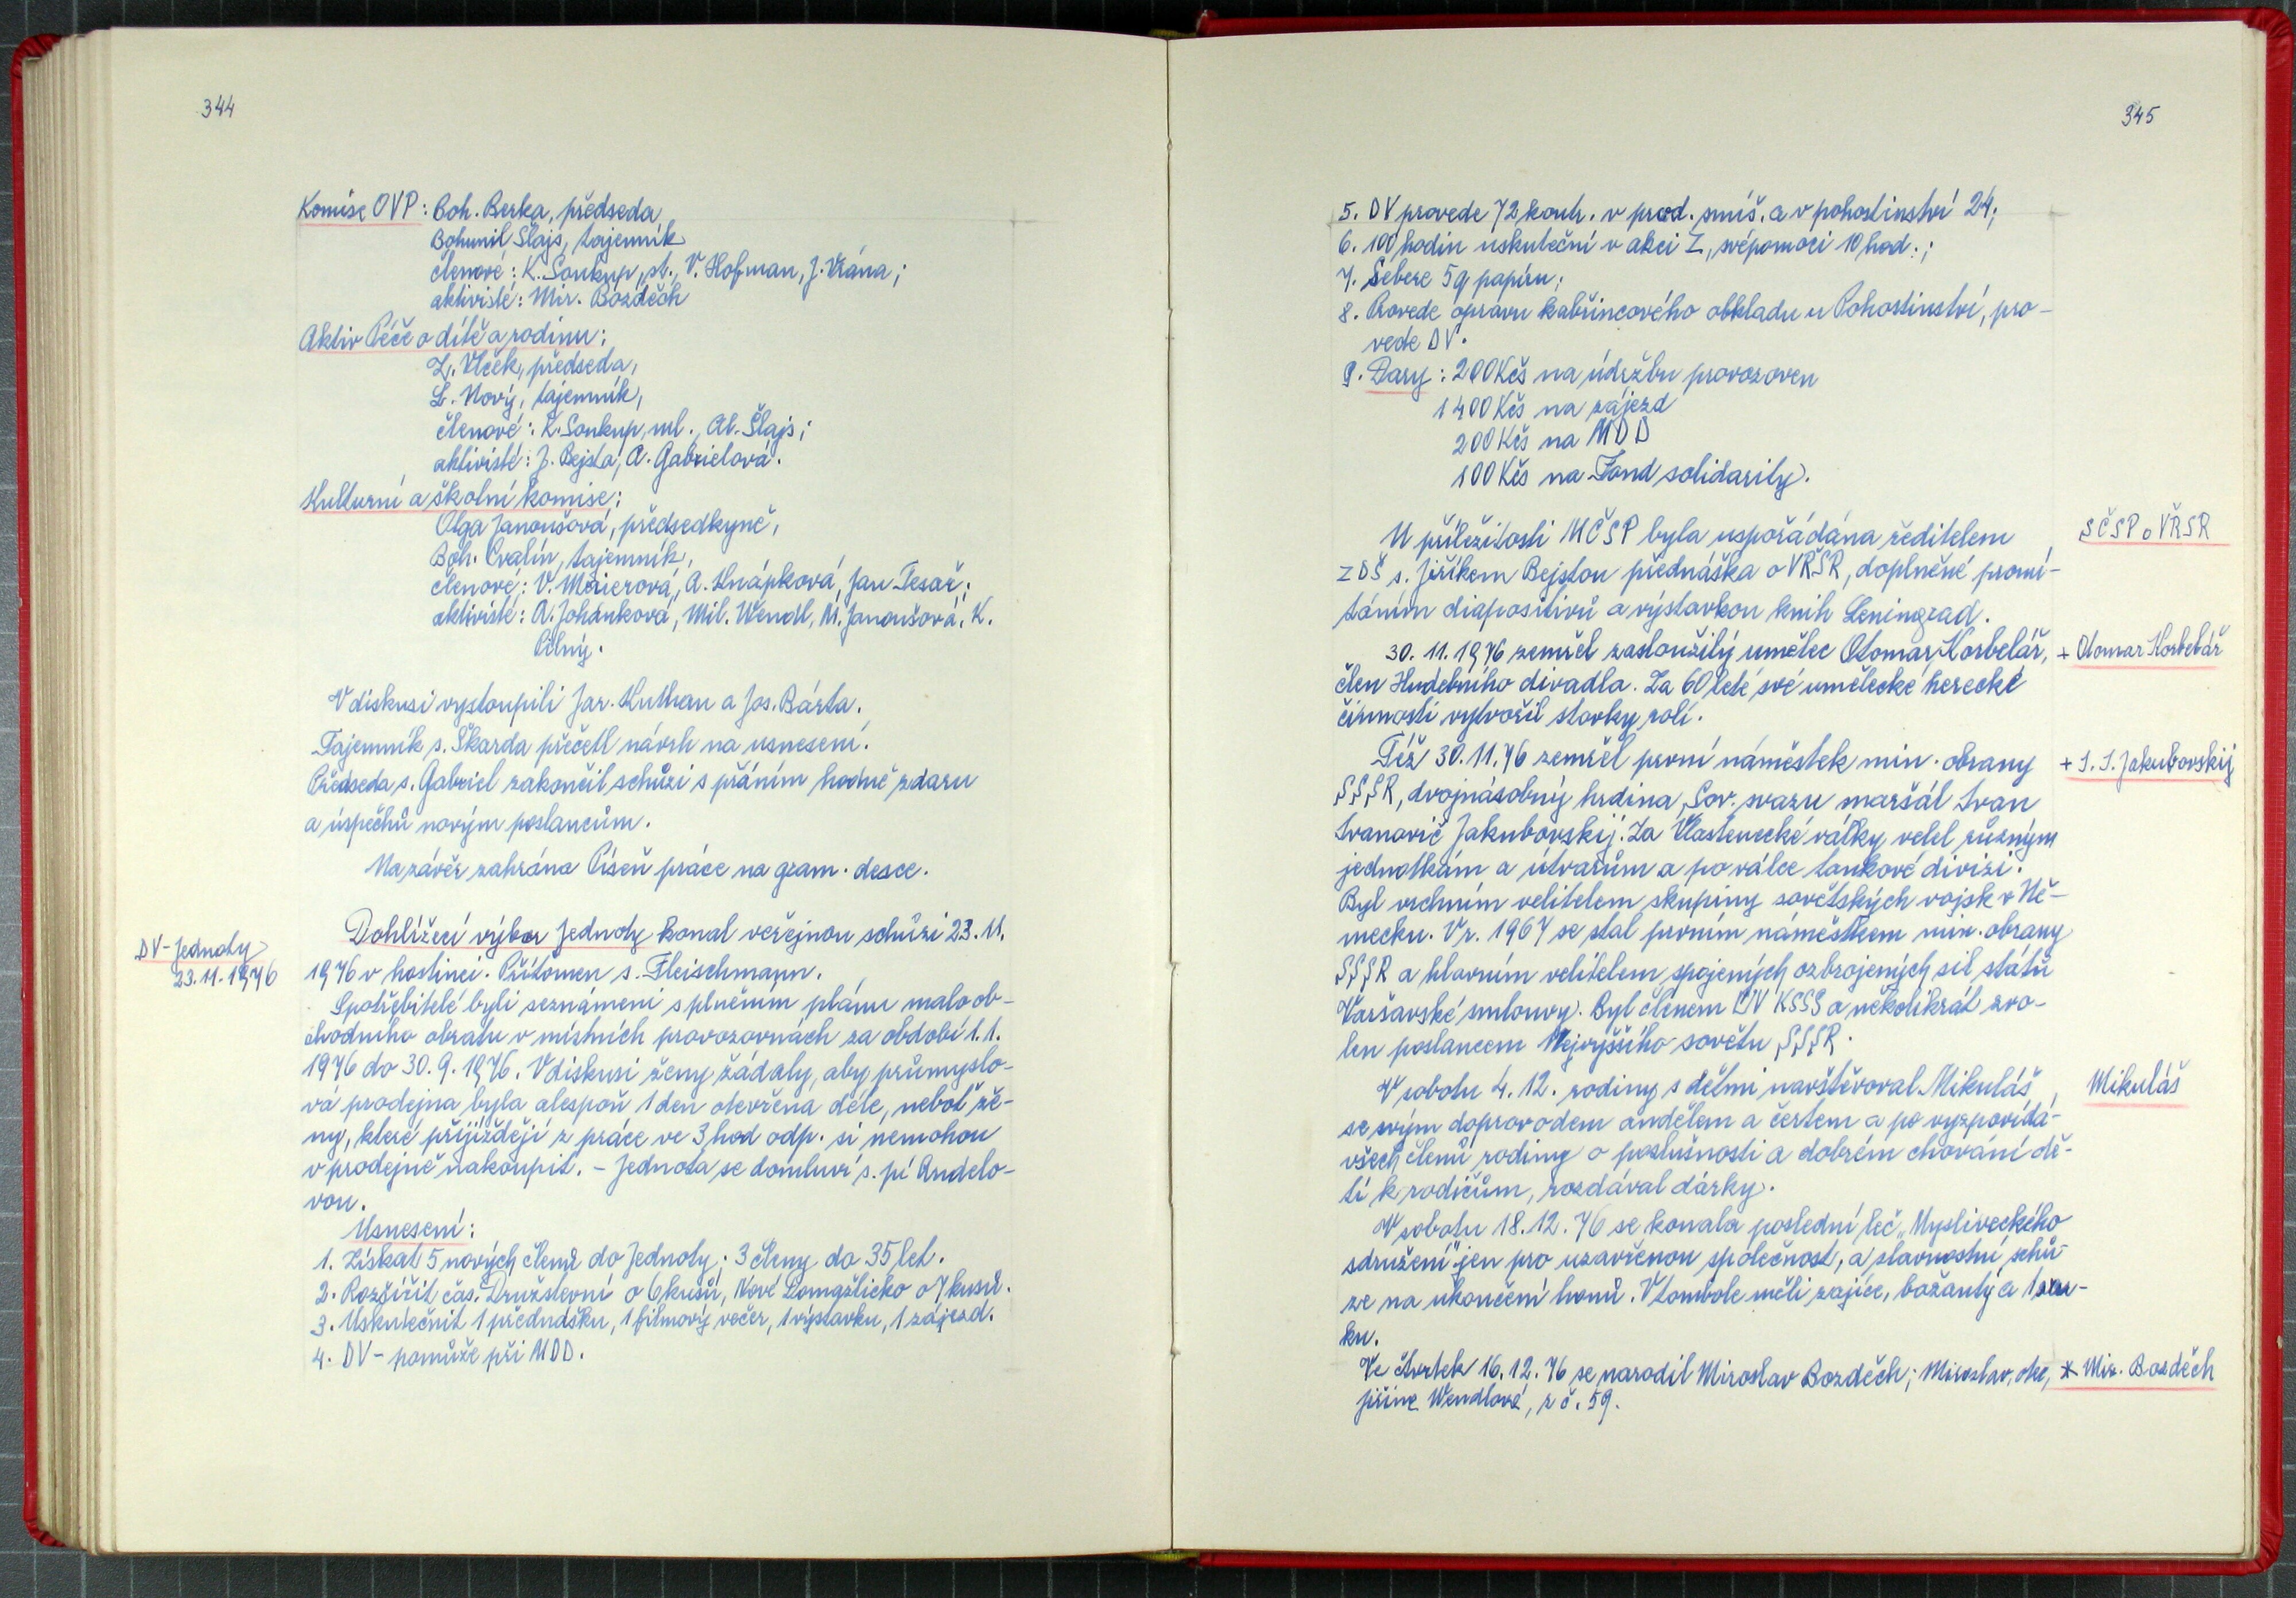 344
Komise OVP: Boh. Berka, předseda
Bohumil Šlajs, tajemník
členové: K. Soukup, st., V. Hofman, J. Vrána;
aktivisté: Mir. Bozděch
Aktiv Péče o dítě a rodinu:
Z. Vlček, předseda,
L. Nový, tajemník,
členové: K. Soukup, ml., Al. Šlajs;
aktivisté: J. Bejsta, A. Gabrielová.
Kulturní a školní komise:
Olga Janoušová, předsedkyně,
Boh. Cvalín, tajemník,
členové: V. Meierová, A. Knápková, Jan Tesař;
aktivisté: A. Johánková, Mil. Wendl, M. Janoušová, K.
Pilný.
V diskusi vystoupili Jar. Kuthan a Jos. Bárta.
Tajemník s. Škarda přečetl návrh na usnesení.
Předseda s. Gabriel zakončil schůzi s přáním hodně zdaru
a úspěchů novým poslancům.
Na závěr zahrána Píseň práce na gram. desce.
DV-Jednoty
23.11.1976
Dohlížecí výbor Jednoty konal veřejnou schůzi 23. 11.
1976 v hostinci. Přítomen s. Fleischmann.
Spotřebitelé byli seznámeni s plněním plánu maloob-
chodního obratu v místních provozovnách za období 1. 1.
1976 do 30. 9. 1976. V diskusi ženy žádaly, aby průmyslo-
vá prodejna byla alespoň 1 den otevřena déle, neboť že-
ny, které přijíždějí z práce ve 3 hod odp. si nemohou
v prodejně nakoupit. - Jednota se domluví s. pí Andelo-
vou.
Usnesení:
1. Získat 5 nových členů do Jednoty; 3 členy do 35 let.
2. Rozšířit čas. Družstevní o 6 kusů, Nové Domažlicko o 7 kusů.
3. Uskutečnit 1 přednášku, 1 filmový večer, 1 výstavku, 1 zájezd.
4. DV - pomůže při MDD.
345
5. DV provede 72 kontr. v prod. smíš. a v pohostinství 24;
6. 100 hodin uskuteční v akci Z, svépomoci 10 hod.;
7. Sebere 5q papíru;
8. Provede opravu kabřincového obkladu u Pohostinství, pro-
vede DV.
9. Dary: 200 Kčs na údržbu provozoven
1400 Kčs na zájezd
200 Kčs na MDD
100 Kčs na Fond solidarity.
U příležitosti MČSP byla uspořádána ředitelem
SČSP o VŘSR
ZDŠ s. Jiříkem Bejstou přednáška o VŘSR, doplněné promí-
táním diapositivů a výstavkou knih Leningrad.
30. 11. 1976 zemřel zasloužilý umělec Otomar Korbelář,
+ Otomar Korbelář
člen Hudebního divadla. Za 60 leté své umělecké herecké
činnosti vytvořil stovky rolí.
Též 30. 11. 76 zemřel první náměstek min. obrany
+ I. I. Jakubovskij
SSSR, dvojnásobný hrdina Sov. svazu maršál Ivan
Ivanovič Jakubovskij. Za Vlastenecké války velel různým
jednotkám a útvarům a po válce tankové divizi.
Byl vrchním velitelem skupiny sovětských vojsk v Ně-
mecku. V r. 1967 se stal prvním náměstkem min. obrany
SSSR a hlavním velitelem spojených ozbrojených sil států
Varšavské smlouvy. Byl členem ÚV KSSS a několikrát zvo-
len poslancem Nejvyššího sovětu SSSR.
V sobotu 4. 12. rodiny s dětmi navštěvoval Mikuláš
Mikuláš
se svým doprovodem andělem a čertem a po vyzpovídá-
všech členů rodiny o poslušnosti a dobrém chování dě-
tí k rodičům, rozdával dárky.
V sobotu 18. 12. 76 se konala poslední leč „Mysliveckého
sdružení" jen pro uzavřenou společnost, a slavnostní schů-
ze na ukončení honů. V tombole měli zajíce, bažanty a 1
ku.
Ve čtvrtek 16. 12. 76 se narodil Miroslav Bozděch; Miroslav, otec,
* Mir. Bozděch
Jiřině Wendlové, z č. 59.